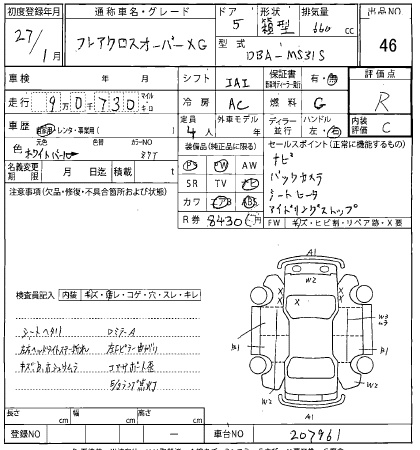 初度登録年月 通称車名・グレード ドア 形状 排気量 出品NO
27/1月 フレアクロスオーバー XG 5 箱型 660cc 46
型式 DBA-MS31S
車検 年 月 シフト IAI 保証書 有・無 評価点
走行 9万0千730 マイル・キロ 冷房 AC 燃料 G R
車歴 自家用・レンタ・事業用( ) 定員 4人 外車モデル 年 ディーラー 並行 ハンドル 左・右 内装評価 C
色 元色 替色 カラーNO
ホワイトパール
装備品(純正品に限る) セールスポイント(正常に機能するもの)
名義変更期限 月 日迄 積載 t
PS PW AW ナビ
SR TV ナビ バックカメラ
カワ エアB ABS シートヒータ
R券 8430円 アイドリングストップ
注意事項(欠品・修復・不具合箇所および状態)
FW キズ・ヒビ割・リペア跡・X要
A1
W2
検査員記入 内装 キズ・擦レ・コゲ・穴・スレ・キレ
X X
シートヘタリ DミラーA
W3
B1 B1
エアサポート歪
W2 W2
A1
長さ cm 幅 cm 高さ cm
登録NO ー 車台NO 207961